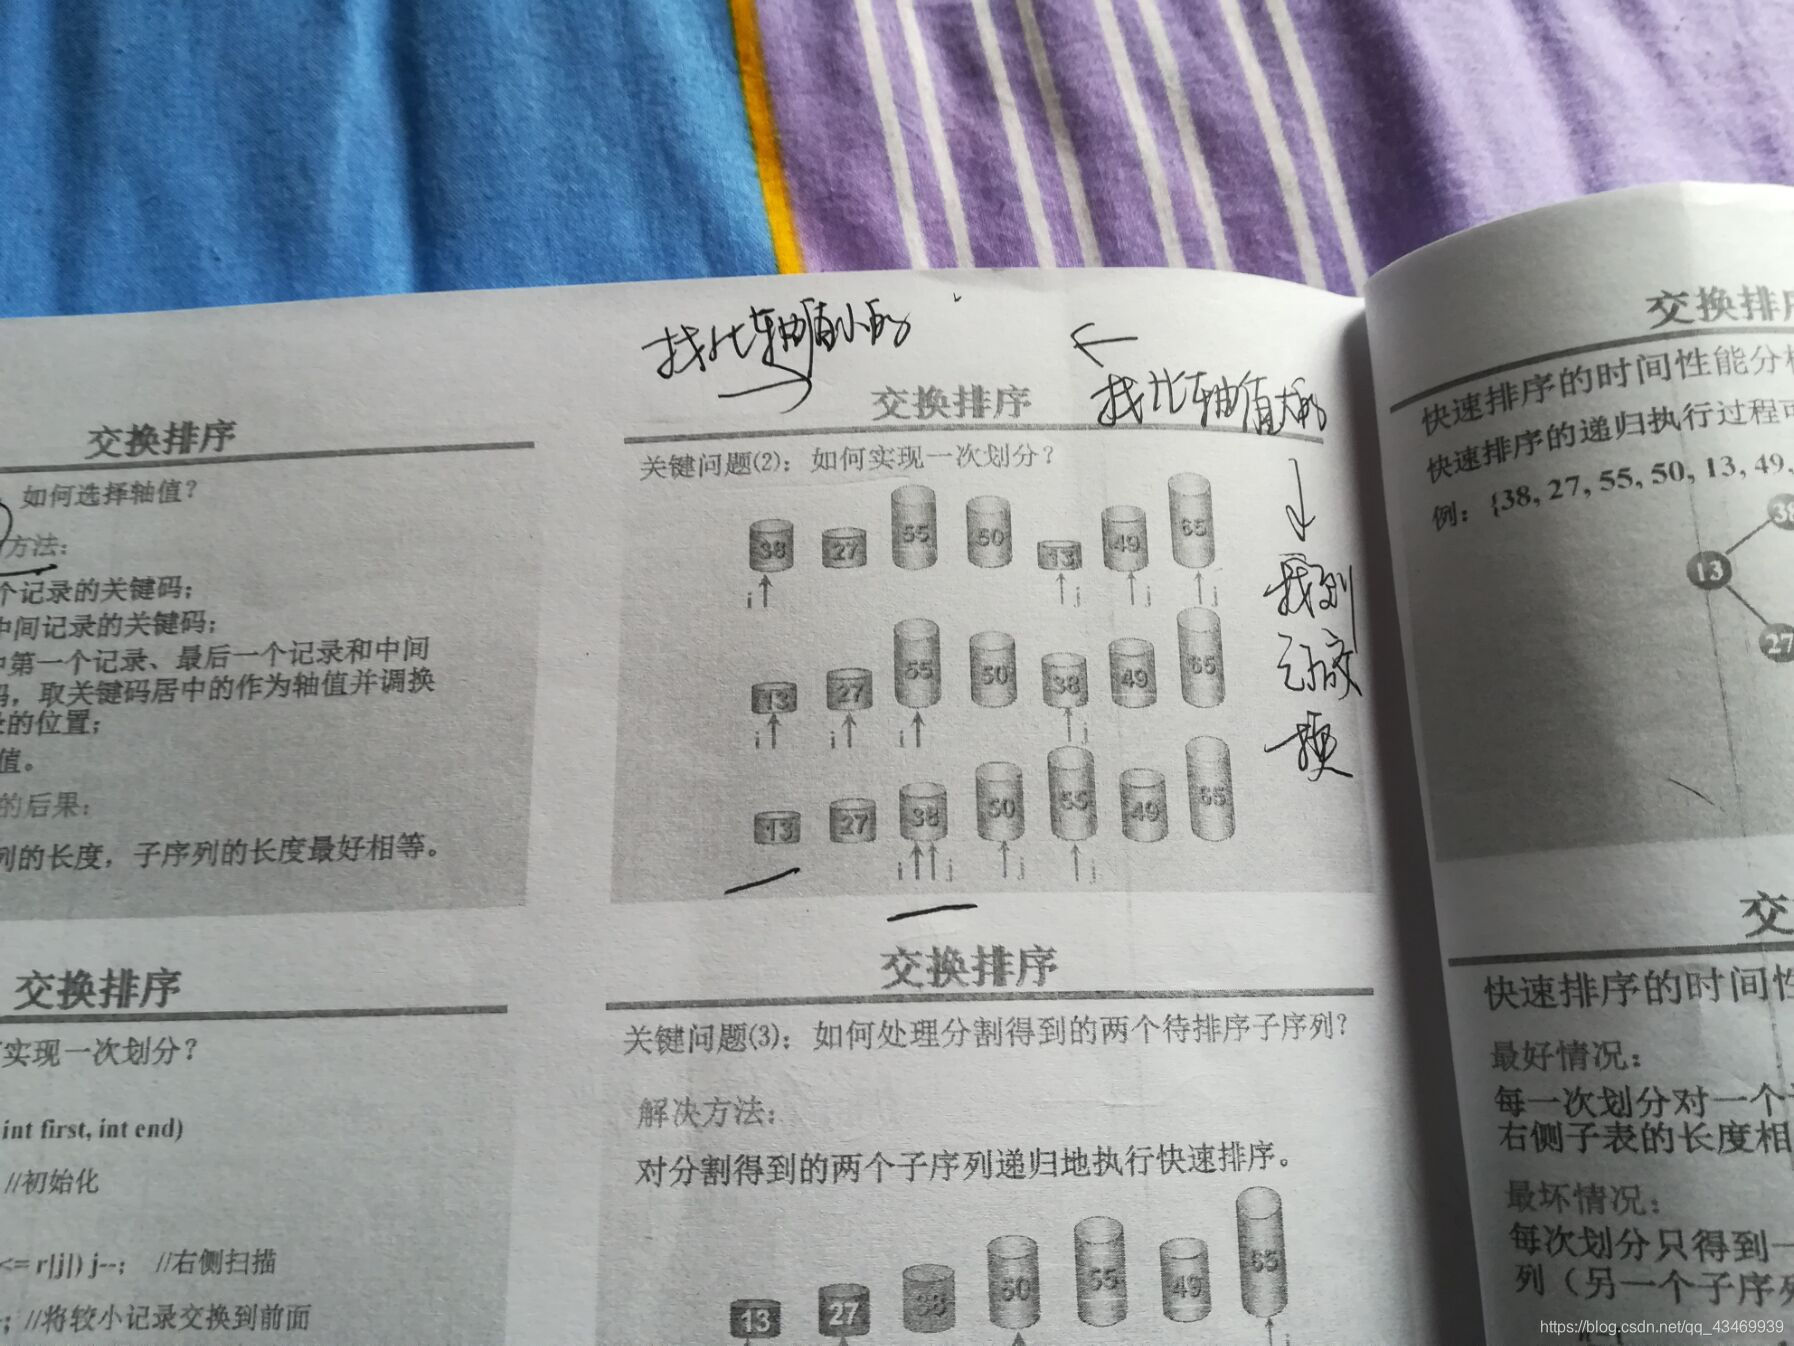 找比轴值小的
←
找比轴值大的
→
↓
找到
交
换
交换排序
如何选择轴值?
方法:
个记录的关键码;
中间记录的关键码;
中第一个记录、最后一个记录和中间
码,取关键码居中的作为轴值并调换
录的位置;
值。
的后果:
列的长度,子序列的长度最好相等。
交换排序
关键问题(2):如何实现一次划分?
38 27 55 50 13 49 65
i j j j
13 27 55 50 38 49 65
i i i j
13 27 38 50 55 49 65
i j j j
交换排序
实现一次划分?
int first, int end)
//初始化
<= r[j]) j--; //右侧扫描
; //将较小记录交换到前面
交换排序
关键问题(3):如何处理分割得到的两个待排序子序列?
解决方法:
对分割得到的两个子序列递归地执行快速排序。
13 27 38 50 55 49 65
j
交换排序
快速排序的时间性能分析
快速排序的递归执行过程可
例:{38, 27, 55, 50, 13, 49,
38
13
27
交
快速排序的时间性
最好情况:
每一次划分对一个
右侧子表的长度相
最坏情况:
每次划分只得到一
列(另一个子序列
https://blog.csdn.net/qq_43469939